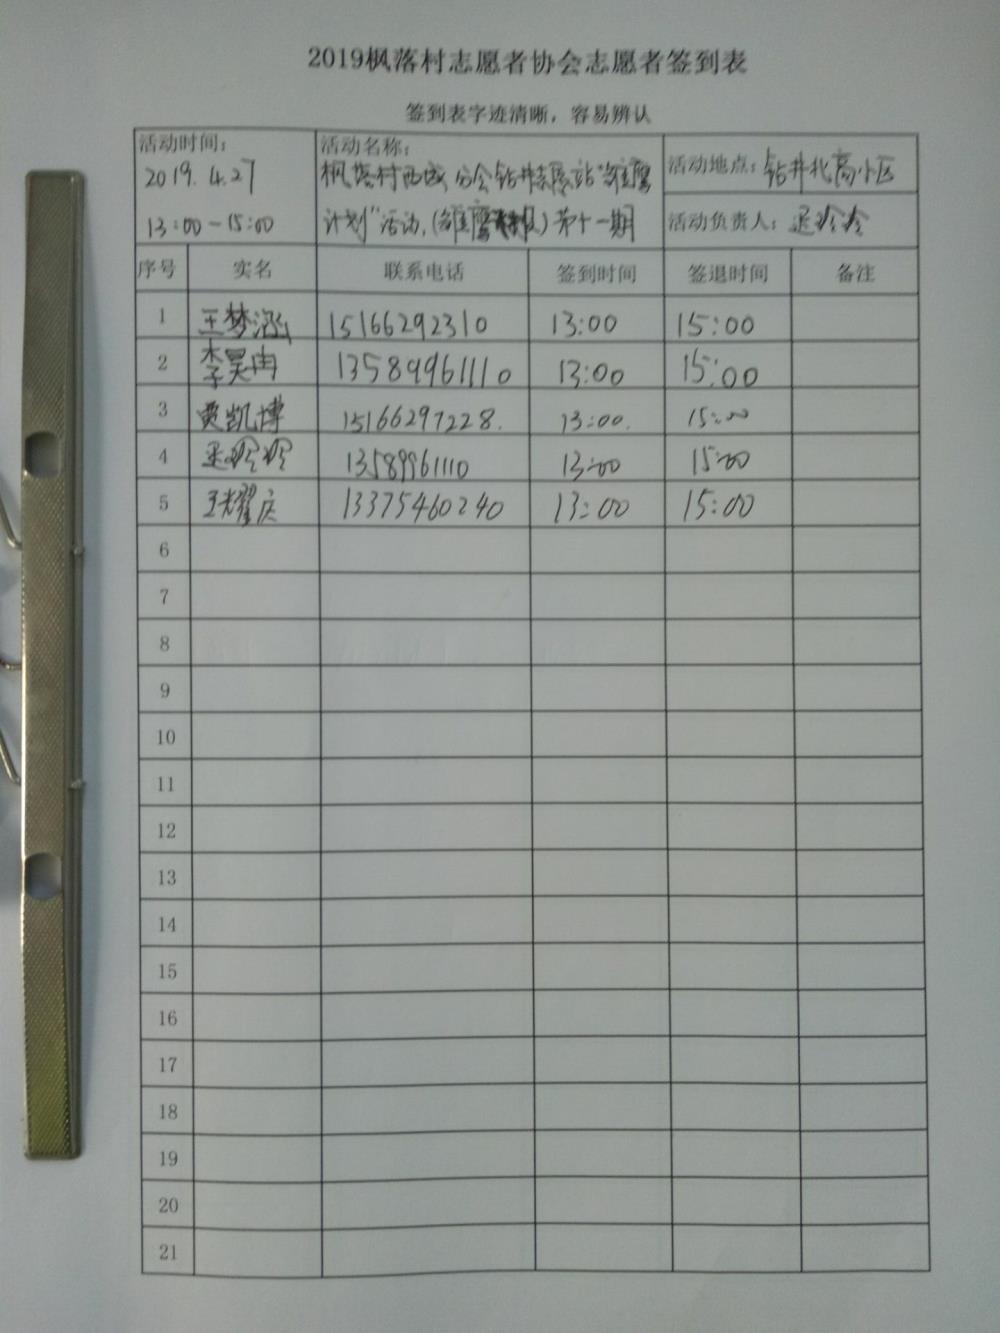 2019枫落村志愿者协会志愿者签到表
签到表字迹清晰，容易辨认
活动时间：
2019.4.27
13:00-15:00
活动名称：
枫落村西城分会钻井志愿站“雏鹰
计划”活动，(雏鹰) 第十一期
活动地点：钻井北高小区
活动负责人：玲玲
序号 实名 联系电话 签到时间 签退时间 备注
1 王梦涵 15166292310 13:00 15:00
2 李昊冉 13589961110 13:00 15:00
3 贾凯博 15166297228. 13:00. 15:00
4 玲玲 13589961110 13:00 15:00
5 王耀庆 13375460240 13:00 15:00
6
7
8
9
10
11
12
13
14
15
16
17
18
19
20
21